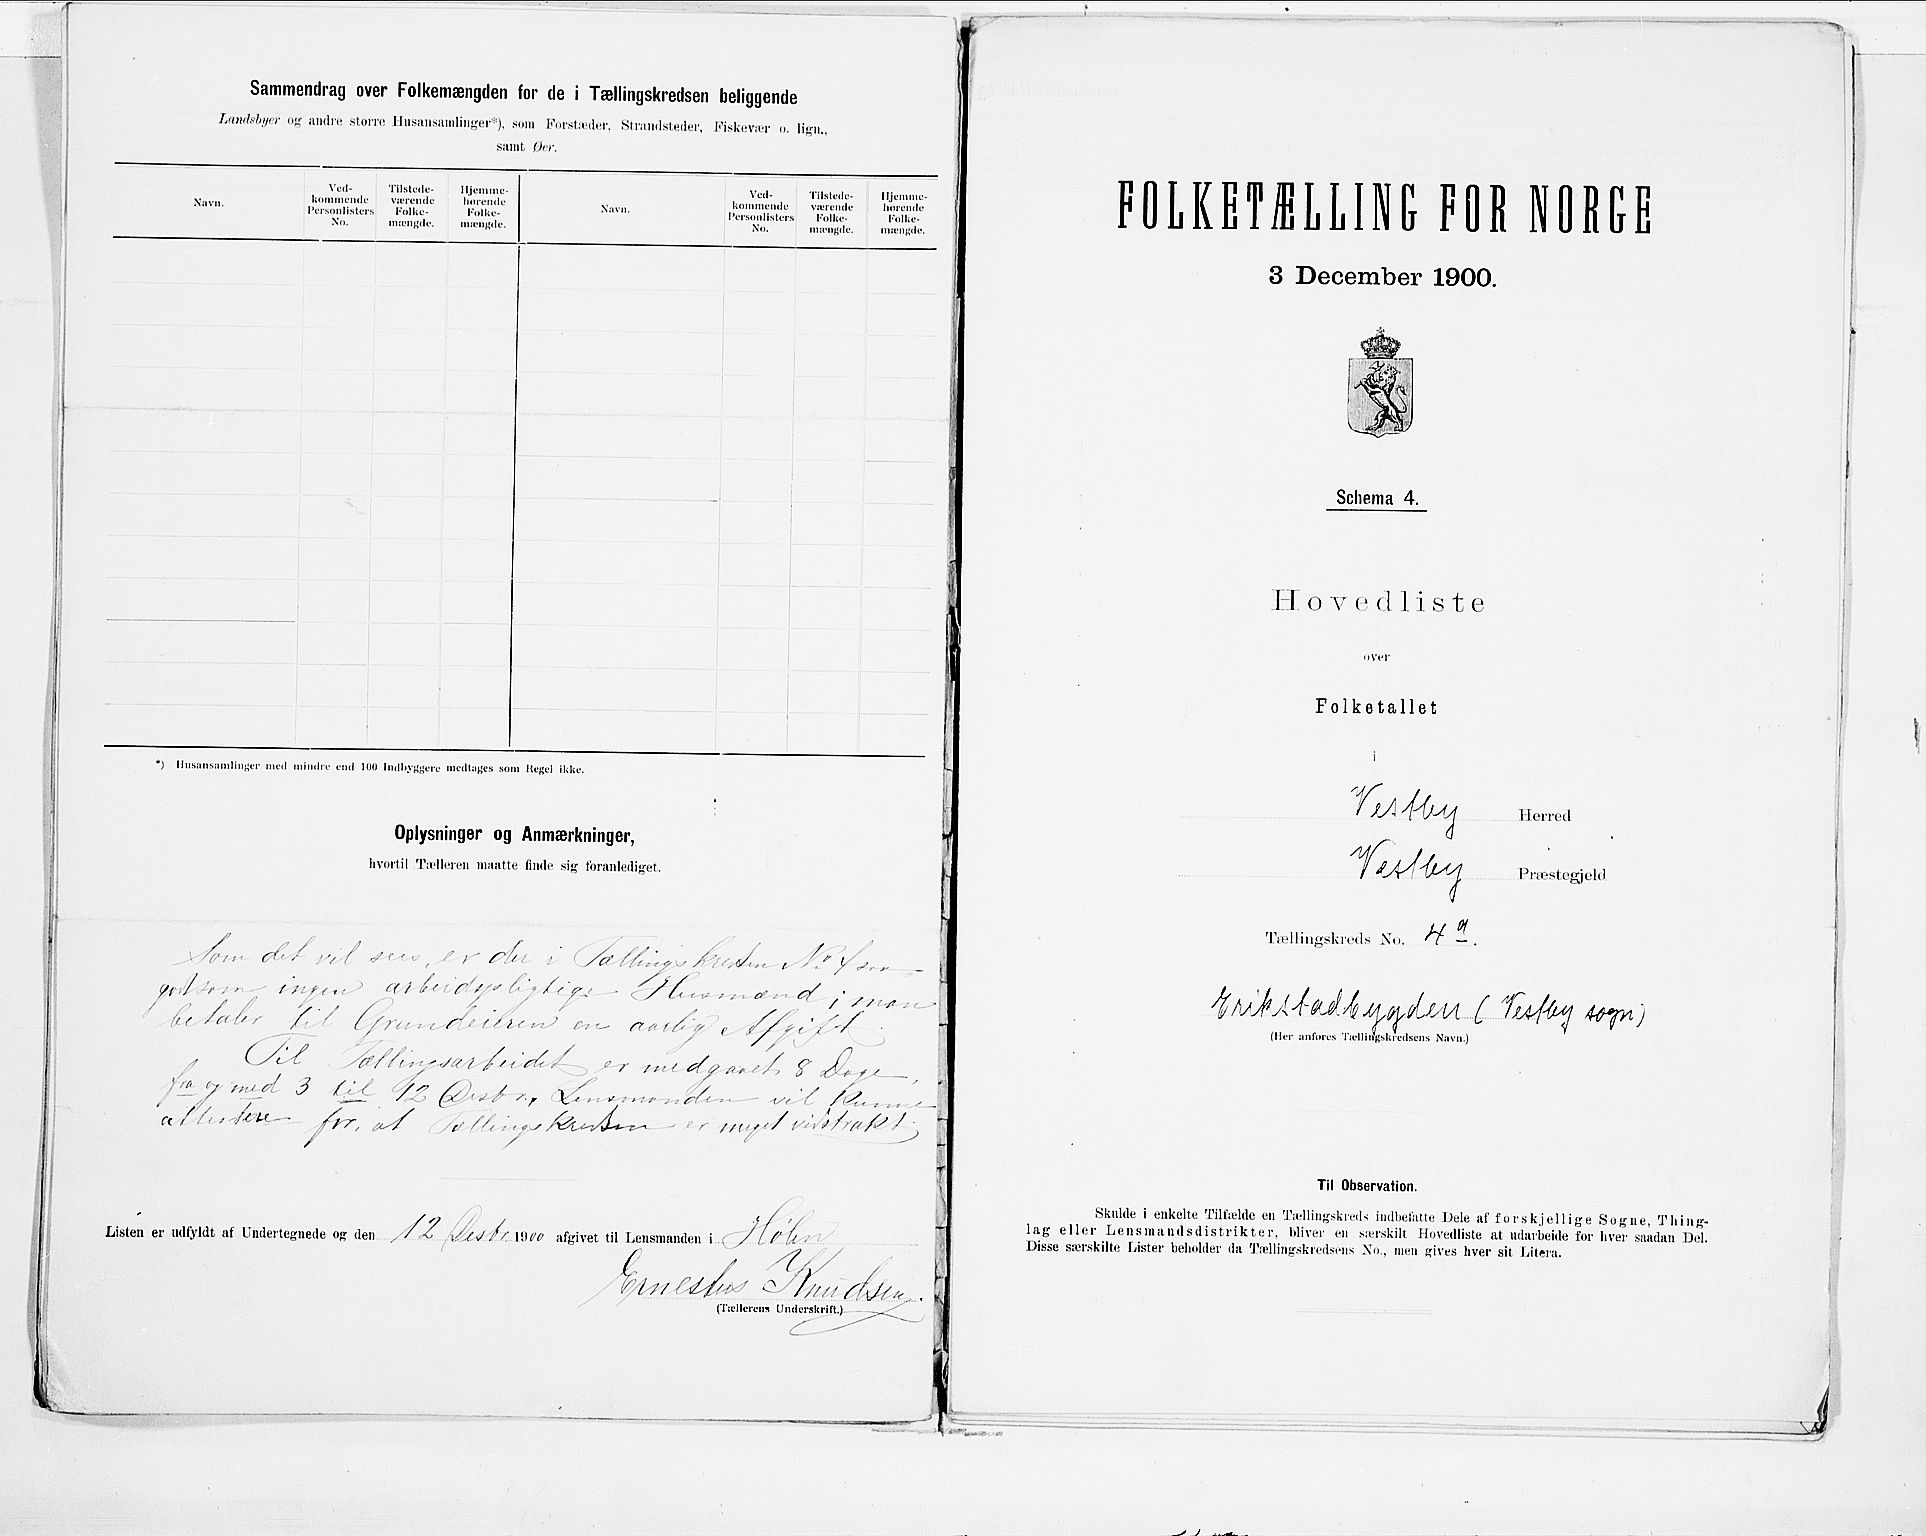 Sammendrag over Folkemængden for de i Tællingskredsen beliggende
Landsbyer og andre større Husansamlinger*), som Forstæder, Strandsteder, Fiskevær o. lign.,
samt Øer.
Navn.
Ved-
kommende
Personlisters
No.
Tilstede-
værende
Folke-
mængde.
Hjemme-
hørende
Folke-
mængde.
Navn.
Ved-
kommende
Personlisters
No.
Tilstede-
værende
Folke-
mængde.
Hjemme-
hørende
Folke-
mængde.
*) Husansamlinger med mindre end 100 Indbyggere medtages som Regel ikke.
Oplysninger og Anmærkninger,
hvortil Tælleren maatte finde sig foranlediget.
Som det vil sees, er der i Tællingskredsen No 4 saa
godtsom ingen arbeidspligtige Husmænd; man
betaler til Grundeieren en aarlig Afgift.
Til Tællingsarbeidet er medgaaet 8 Dage,
fra og med 3 til 12 Desbr., Lensmanden vil kunne
attestere for, at Tællingskredsen er meget vidstrakt.
Listen er udfyldt af Undertegnede og den 12 Desbr. 1900 afgivet til Lensmanden i Hølen
Ernestus Knudsen.
(Tællerens Underskrift.)
FOLKETÆLLING FOR NORGE
3 December 1900.
Schema 4.
Hovedliste
over
Folketallet
i
Vestby Herred
Vestby Præstegjeld
Tællingskreds No. 4 a.
Erikstadbygden (Vestby sogn)
(Her anføres Tællingskredsens Navn.)
Til Observation.
Skulde i enkelte Tilfælde en Tællingskreds indbefatte Dele af forskjellige Sogne, Thing-
lag eller Lensmandsdistrikter, bliver en særskilt Hovedliste at udarbeide for hver saadan Del.
Disse særskilte Lister beholder da Tællingskredsens No., men gives hver sit Litera.